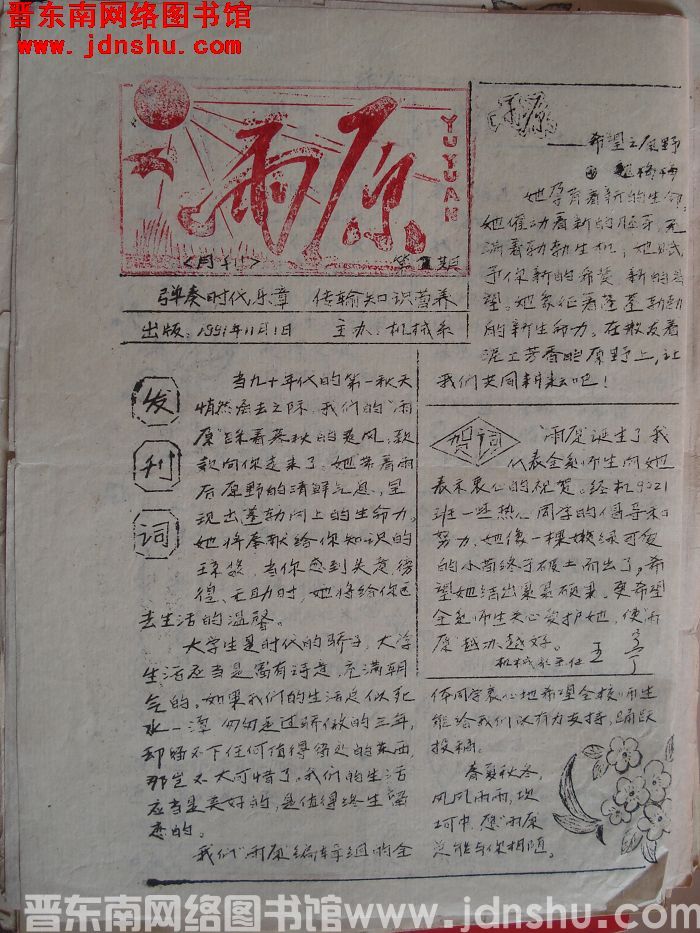 晋东南网络图书馆
www.jdnshu.com
雨原
YUYUAN
<月刊>
第 期
弹奏时代乐章 传输知识营养
出版:1991年11月1日 主办:机械系
发刊词
当九十年代的第一秋天
悄然离去之际,我们的“雨
原”踩着暮秋的爽风,款
款向你走来了,她带着雨
后原野的清鲜气息,呈
现出蓬勃向上的生命力。
她将奉献给你知识的
琼浆,当你感到失意、徬
徨、无助时,她将给你
去生活的温馨。
大学生是时代的骄子,大学
生活应当是富有诗意,充满朝
气的。如果我们的生活是似死
水一潭,匆匆走过骄傲的三年,
却留不下任何值得 的东西,
那岂不太可惜了。我们的生活
应当是美好的,是值得终生留
恋的。
我们“雨原”编辑组的全
体同学衷心地希望全校师生
能给我们以有力支持,踊跃
投稿。
春夏秋冬,
风风雨雨,坎
坷中,愿“雨原”
总能与你相随。
雨原
——希望之原野
梅梅
她孕育着新的生命,
她催动着新的胚芽,充
满着勃勃生机,她赋
予你新的希冀,新的
望。她象征着蓬蓬勃勃
的新生命力。在散发着
泥土芳香的原野上,让
我们共同耕耘吧!
贺词
“雨原”诞生了,我
代表全系师生向她
表示衷心的祝贺。经机9021
班一些热心同学的倡导和
努力,她像一棵嫩绿可爱
的小苗终于破土而出了,希
望她结出累累硕果。更希望
全系师生关心爱护她,使“雨
原”越办越好。
机械系主任 王
晋东南网络图书馆www.jdnshu.com